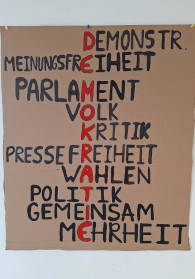 DEMONSTR.
MEINUNGSFREIHEIT
PARLAMENT
VOLK
KRITIK
PRESSEFREIHEIT
WAHLEN
POLITIK
GEMEINSAM
MEHRHEIT